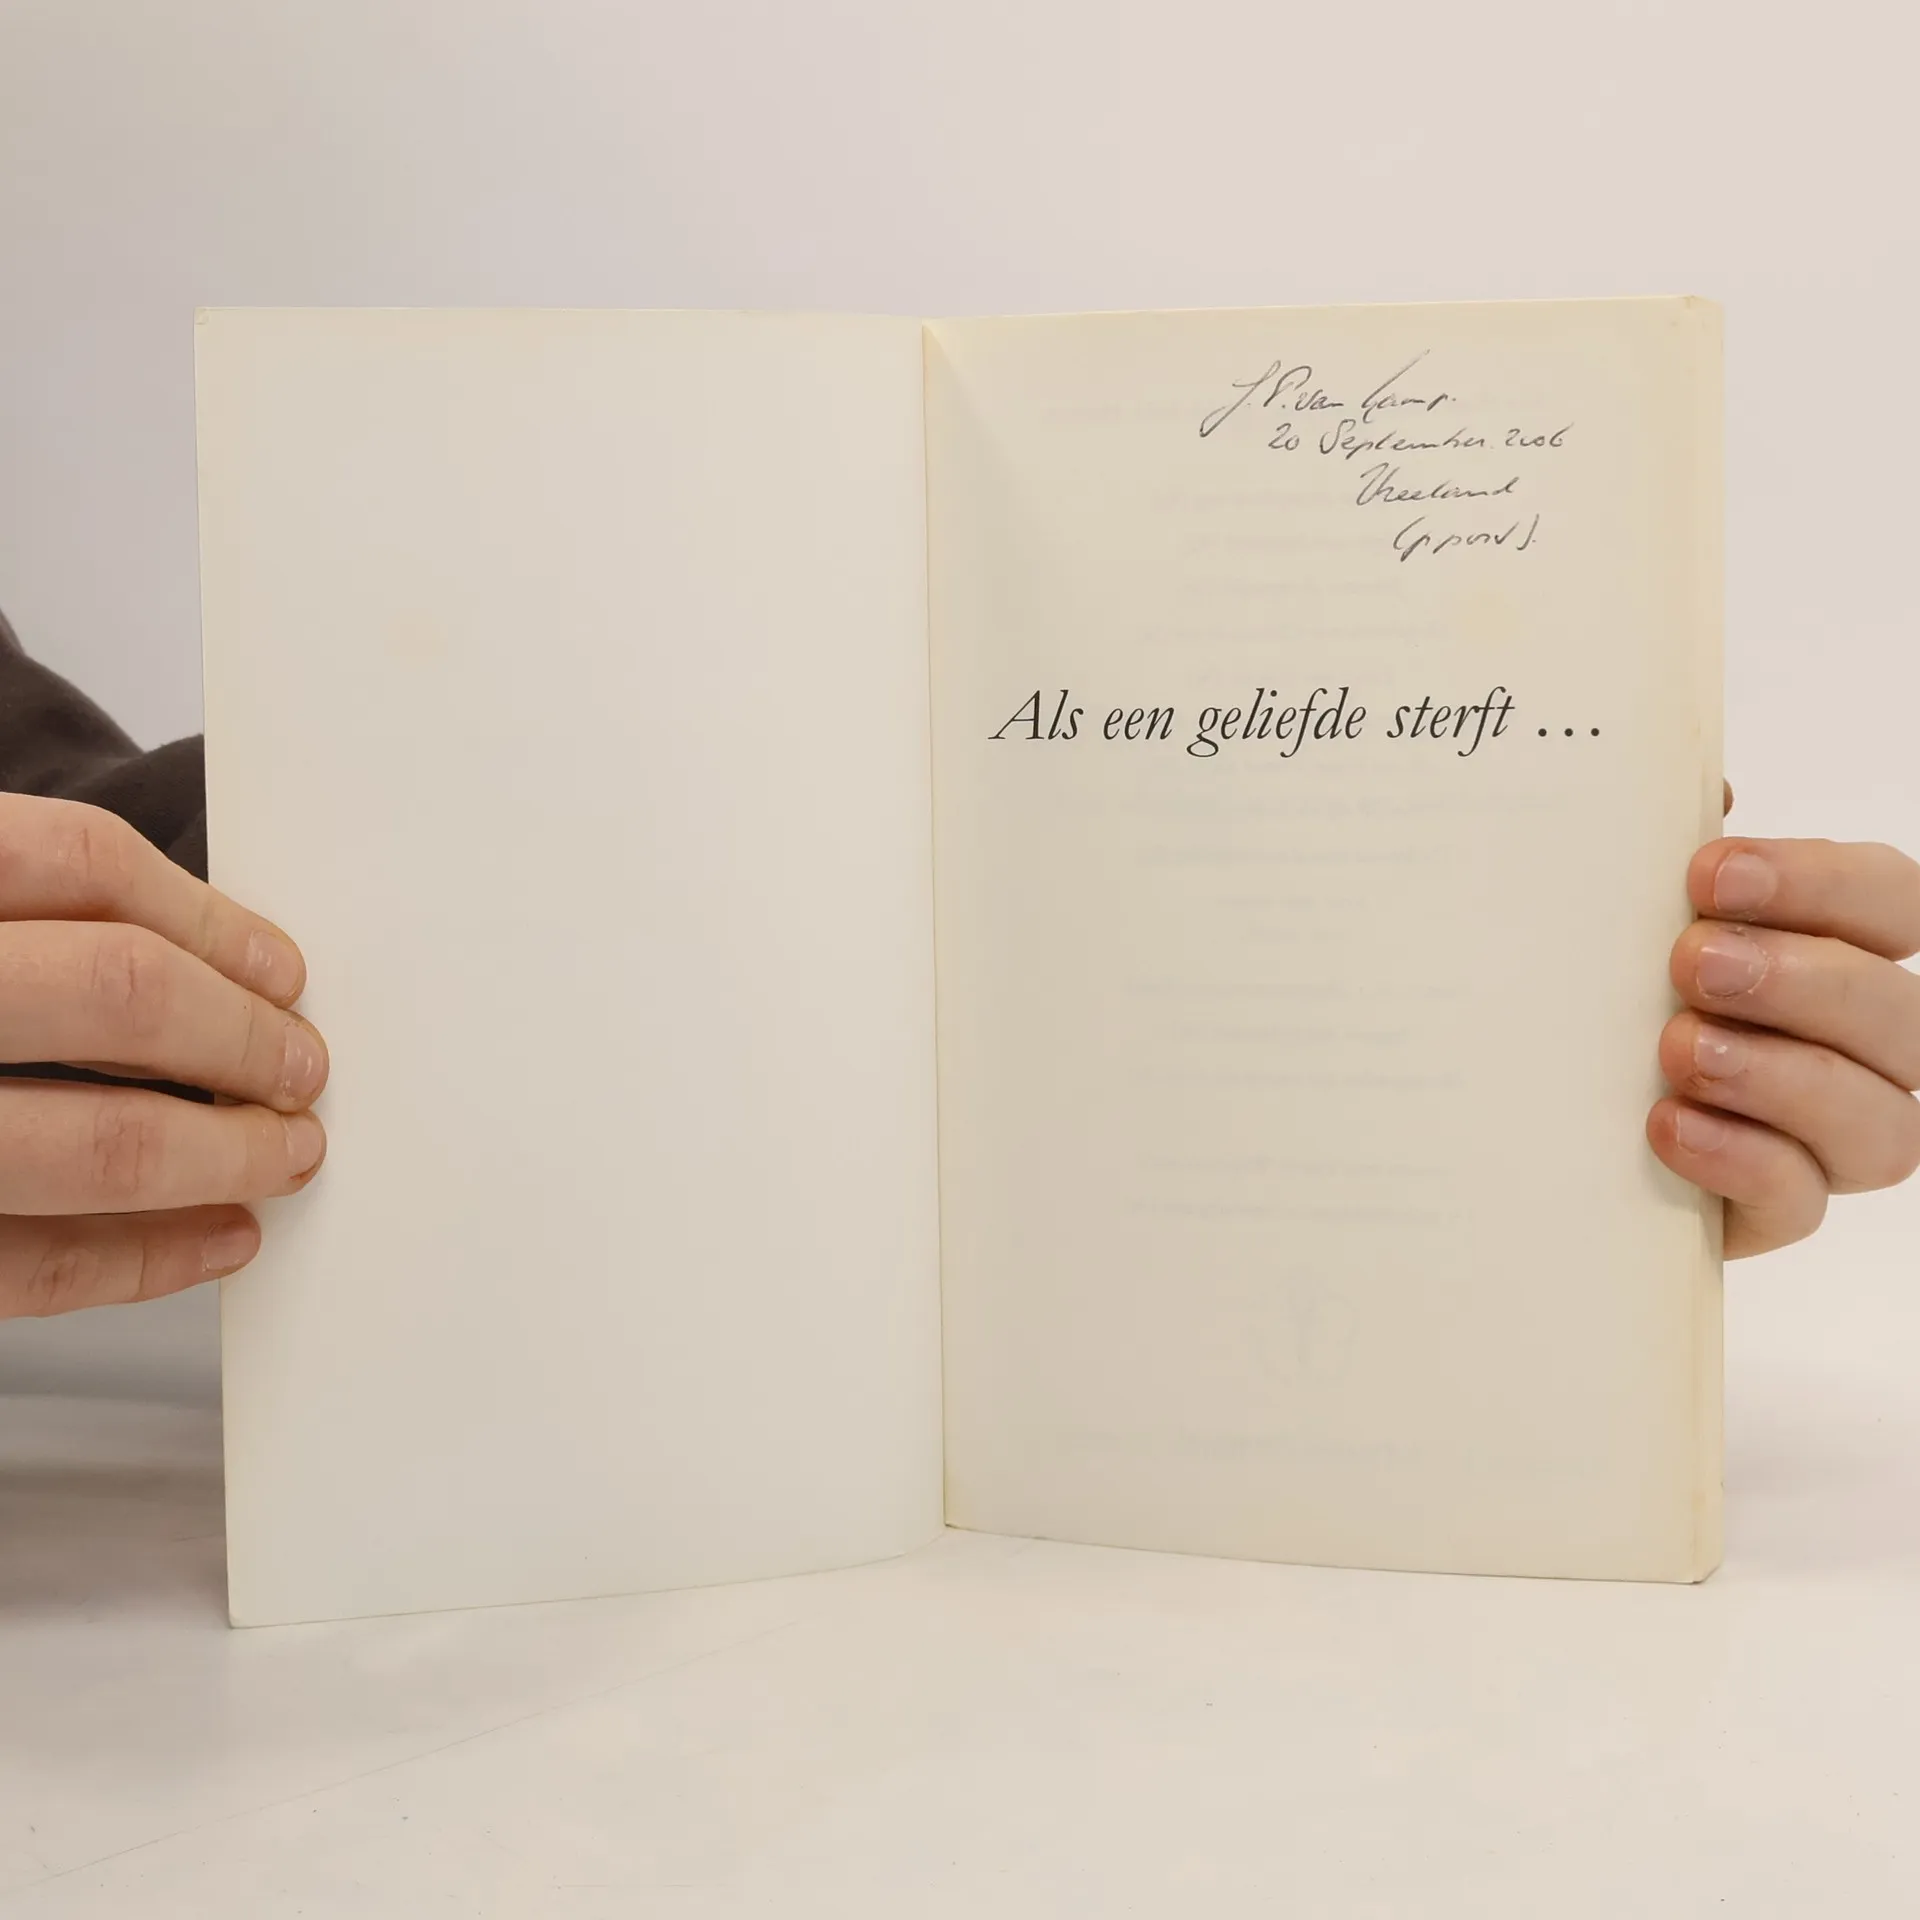 J.P. van Kamp.
20 September. 2006
Vreeland
Als een geliefde sterft ...